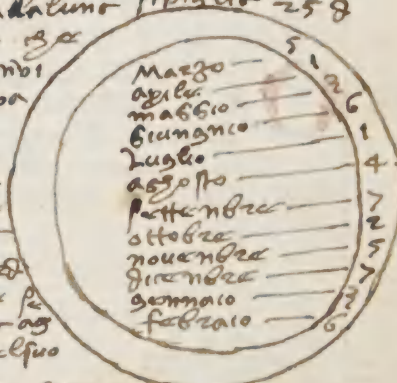 25 8
Marzo 5
aprile 1
maggio 2
giungnio 6
Luglio 1
aghosto 4
settenbre 7
ottobre 2
novenbre 5
dicenbre 7
gennaio 3
febraio 6